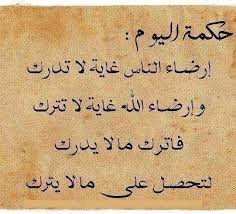 حكمة اليوم :
إرضاء الناس غاية لا تدرك
وإرضاء الله غاية لا تترك
فاترك مالا يدرك
لتحصل على مالا يترك